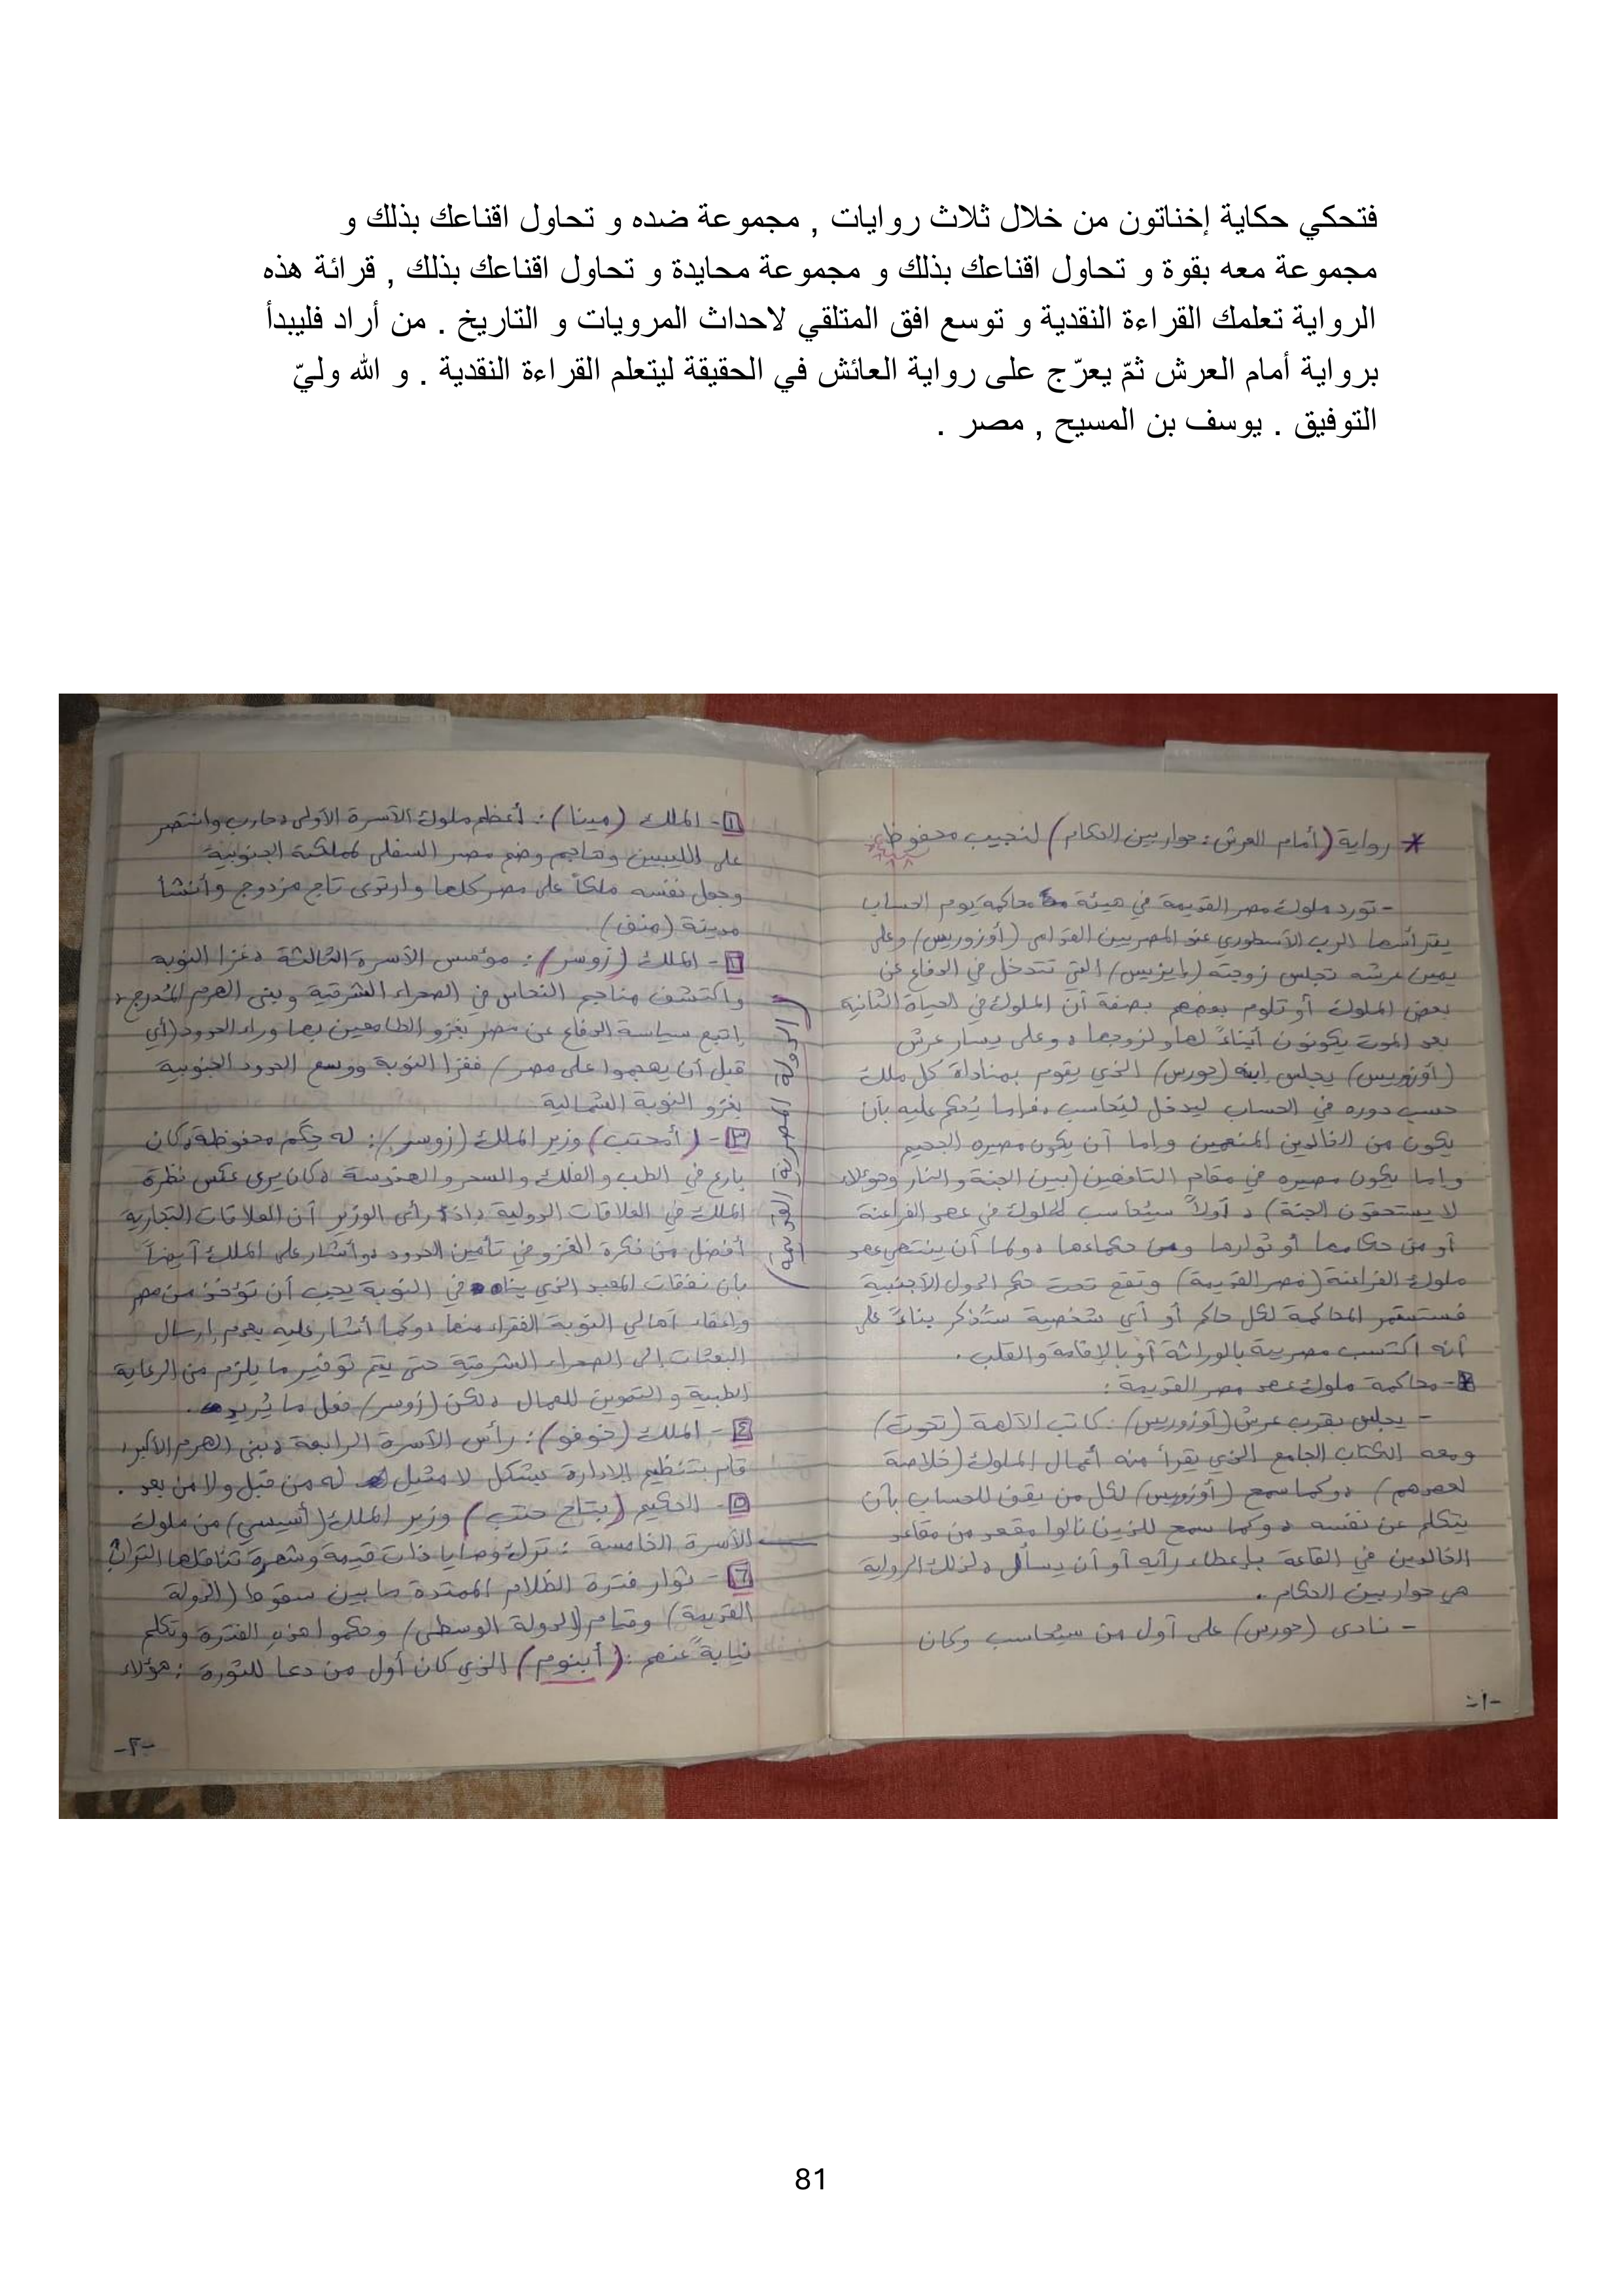 فتحكي حكاية إخناتون من خلال ثلاث روايات , مجموعة ضده و تحاول اقناعك بذلك و
مجموعة معه بقوة و تحاول اقناعك بذلك و مجموعة محايدة و تحاول اقناعك بذلك , قرائة هذه
الرواية تعلمك القراءة النقدية و توسع افق المتلقي لاحداث المرويات و التاريخ . من أراد فليبدأ
برواية أمام العرش ثمّ يعرّج على رواية العائش في الحقيقة ليتعلم القراءة النقدية . و الله وليّ
التوفيق . يوسف بن المسيح , مصر .
* رواية (أمام العرش: حوار بين الحكام) لنجيب محفوظ
- تورد ملوك مصر القديمة في هيئة محاكمة يوم الحساب
يترأسها الرب الأسطوري عند المصريين القدامى (أوزوريس) وعلى
يمين عرشه تجلس زوجته (إيزيس) التي تتدخل في الدفاع عن
بعض الملوك أو تلوم بعضهم بصفة أن الملوك في الحياة الثانية
بعد الموت يكونون أبناءً لها ولزوجها، وعلى يسار عرش
(أوزوريس) يجلس ابنه (حورس) الذي يقوم بمناداة كل ملك
حسب دوره في الحساب ليدخل ليُحاسب، فإما يُحكم عليه بأن
يكون من الخالدين المنعمين وإما أن يكون مصيره الجحيم
وإما يكون مصيره في مقام التافهين (بين الجنة والنار وهؤلاء
لا يستحقون الجنة)، أولاً سيُحاسب الملوك في عصر الفراعنة
أو من حكامها أو ثوارها ومن حكماءها، وكما أن ينتهي عصر
ملوك الفراعنة (مصر القديمة) وتقع تحت حكم الدول الأجنبية
فستستمر المحاكمة لكل حاكم أو أي شخصية ستُذكر بناءً على
أنه اكتسب مصرية بالوراثة أو بالإقامة والقلب.
- محاكمة ملوك عصر مصر القديمة:
- يجلس بقرب عرش (أوزوريس): كاتب الآلهة (تحوت)
ومعه الكتاب الجامع الذي يقرأ منه أعمال الملوك (خلاصة
لعصرهم)، وكما سمح (أوزوريس) لكل من يقف للحساب بأن
يتكلم عن نفسه، وكما سمح للذين نالوا مقعد من مقاعد
الخالدين في القاعة بإعطاء رأيه أو أن يسأل، لذلك الرواية
هي حوار بين الحكام.
- نادى (حورس) على أول من سيُحاسب وكان
-١-
(الدولة المصرية القديمة)
١- الملك (مينا): أعظم ملوك الأسرة الأولى، حارب وانتصر
على الليبيين وهاجم وضم مصر السفلى لمملكته الجنوبية
وجعل نفسه ملكاً على مصر كلها وارتدى تاج مزدوج وأنشأ
مدينة (منف).
٢- الملك (زوسر): مؤسس الأسرة الثالثة، غزا النوبة
واكتشف مناجم النحاس في الصحراء الشرقية وبنى الهرم المُدرج،
إتبع سياسة الدفاع عن مصر بغزو الطامعين بها وراء الحدود (أي
قبل أن يهجموا على مصر) فغزا النوبة ووسع الحدود الجنوبية
بغزو النوبة الشمالية.
٣- (أمحتب) وزير الملك (زوسر): له حِكَم محفوظة، كان
بارع في الطب والفلك والسحر والهندسة، كان يرى عكس نظرة
الملك في العلاقات الدولية، إذ رأى الوزير أن العلاقات التجارية
أفضل من فكرة الغزو في تأمين الحدود، وأشار على الملك أيضاً
بأن نفقات المعبد الذي بناه في النوبة يجب أن تؤخذ من مصر
وإعفاء أهالي النوبة الفقراء منها، وكما أشار عليه بعدم إرسال
البعثات إلى الصحراء الشرقية حتى يتم توفير ما يلزم من الرعاية
الطبية والتموين للعمال، لكن (زوسر) فعل ما يُريد.
٤- الملك (خوفو): رأس الأسرة الرابعة، بنى الهرم الأكبر،
قام بتنظيم الإدارة بشكل لا مثيل له من قبل ولا من بعد.
٥- الحكيم (بتاح حتب) وزير الملك (أسيسي) من ملوك
الأسرة الخامسة: ترك وصايا ذات قيمة وشهرة تناقلها التراث
٦- ثوار فترة الظلام الممتدة ما بين سقوط (الدولة
القديمة) وقيام (الدولة الوسطى) وحكموا هذه الفترة وتكلم
نيابةً عنهم: (أبنوم) الذي كان أول من دعا للثورة: هؤلاء
-٢-
81